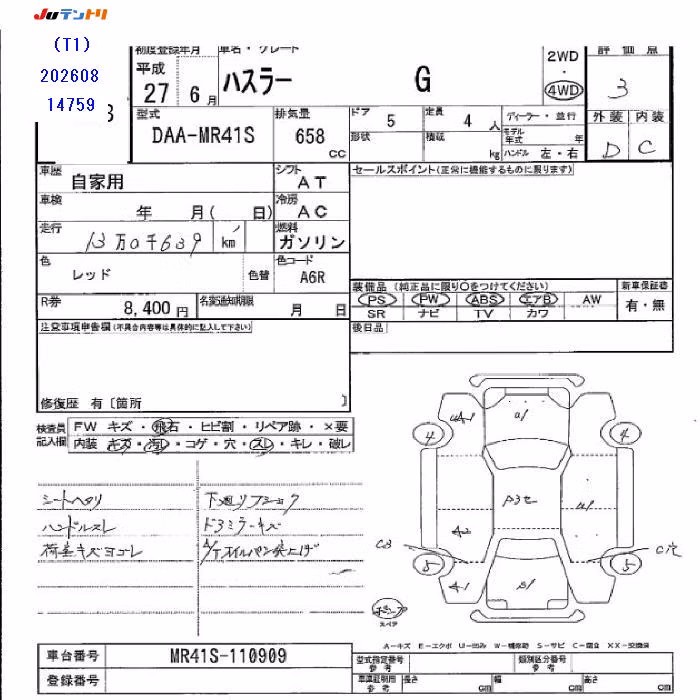 JUテントリ
(T1)
202608
14759
初度登録年月
車名・グレード
平成
27 6月
ハスラー G
2WD
・
4WD
評価点
3
型式
DAA-MR41S
排気量
658
CC
ドア
5
定員
4 人
形状
積載
kg
ディーラー・並行
モデル年式 年
ハンドル 左・右
外装 内装
D C
車歴
自家用
シフト
AT
車検
年 月( 日)
冷房
AC
走行
13万0千639 km
燃料
ガソリン
色
レッド
色替
色コード
A6R
R券
8,400円
名変通知期限
月 日
セールスポイント(正常に機能するものに限ります)
装備品 (純正品に限り○をつけてください)
PS PW ABS エアB AW
SR ナビ TV カワ
新車保証書
有・無
後日品
注意事項申告欄(不具合内容等は具体的に記入して下さい)
修復歴 有〔箇所 〕
検査員記入欄
FW キズ・飛石・ヒビ割・リペア跡・×要
内装 キズ・汚レ・コゲ・穴・スレ・キレ・破レ
シートヘタリ
ハンドルスレ
荷室キズヨゴレ
下廻りフショク
ドアミラーキズ
A/Tオイルパン突上げ
A1
4
4
A2
C3
C穴
5
5
A1
スペア
A-キズ E-エクボ U-凹み W-補修跡 S-サビ C-腐食 XX-交換済
車台番号
MR41S-110909
登録番号
型式指定番号
参考
類別区分番号
参考
車庫証明用
参考
長さ cm
幅 cm
高さ cm